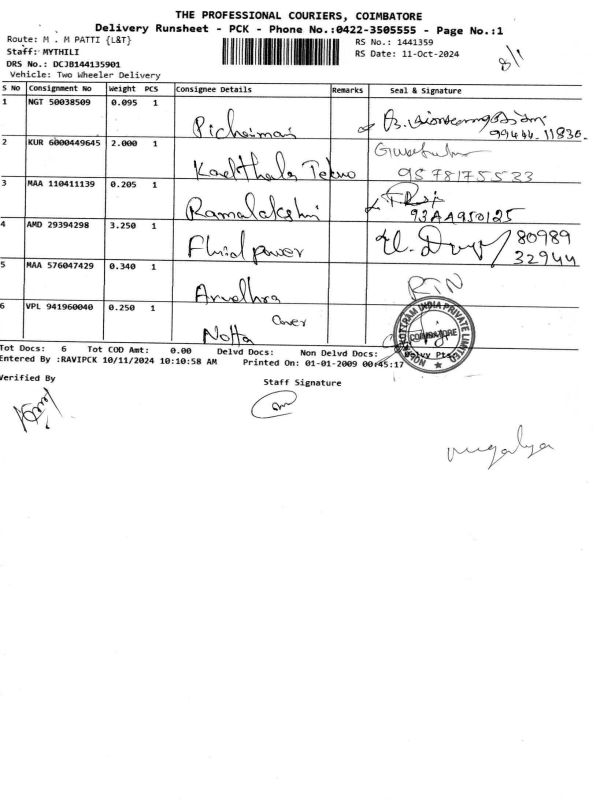 THE PROFESSIONAL COURIERS, COIMBATORE
Delivery Runsheet - PCK - Phone No.:0422-3505555 - Page No.:1
Route: M . M PATTI {L&T} RS No.: 1441359
Staff: MYTHILI RS Date: 11-Oct-2024
DRS No.: DCJB144135901
Vehicle: Two Wheeler Delivery
8/1
S No Consignment No Weight PCS Consignee Details Remarks Seal & Signature
1 NGT 50038509 0.095 1
99444-11836
2 KUR 6000449645 2.000 1
9578175533
3 MAA 110411139 0.205 1 Ramalakshmi
93AA950125
4 AMD 29394298 3.250 1 Fluid power 80989
32944
5 MAA 576047429 0.340 1 RTN
6 VPL 941960040 0.250 1 Cover
COIMBATORE
INDIA PRIVATE LIMITED
Tot Docs: 6 Tot COD Amt: 0.00 Delvd Docs: Non Delvd Docs:
Entered By :RAVIPCK 10/11/2024 10:10:58 AM Printed On: 01-01-2009 00:45:17
Verified By Staff Signature